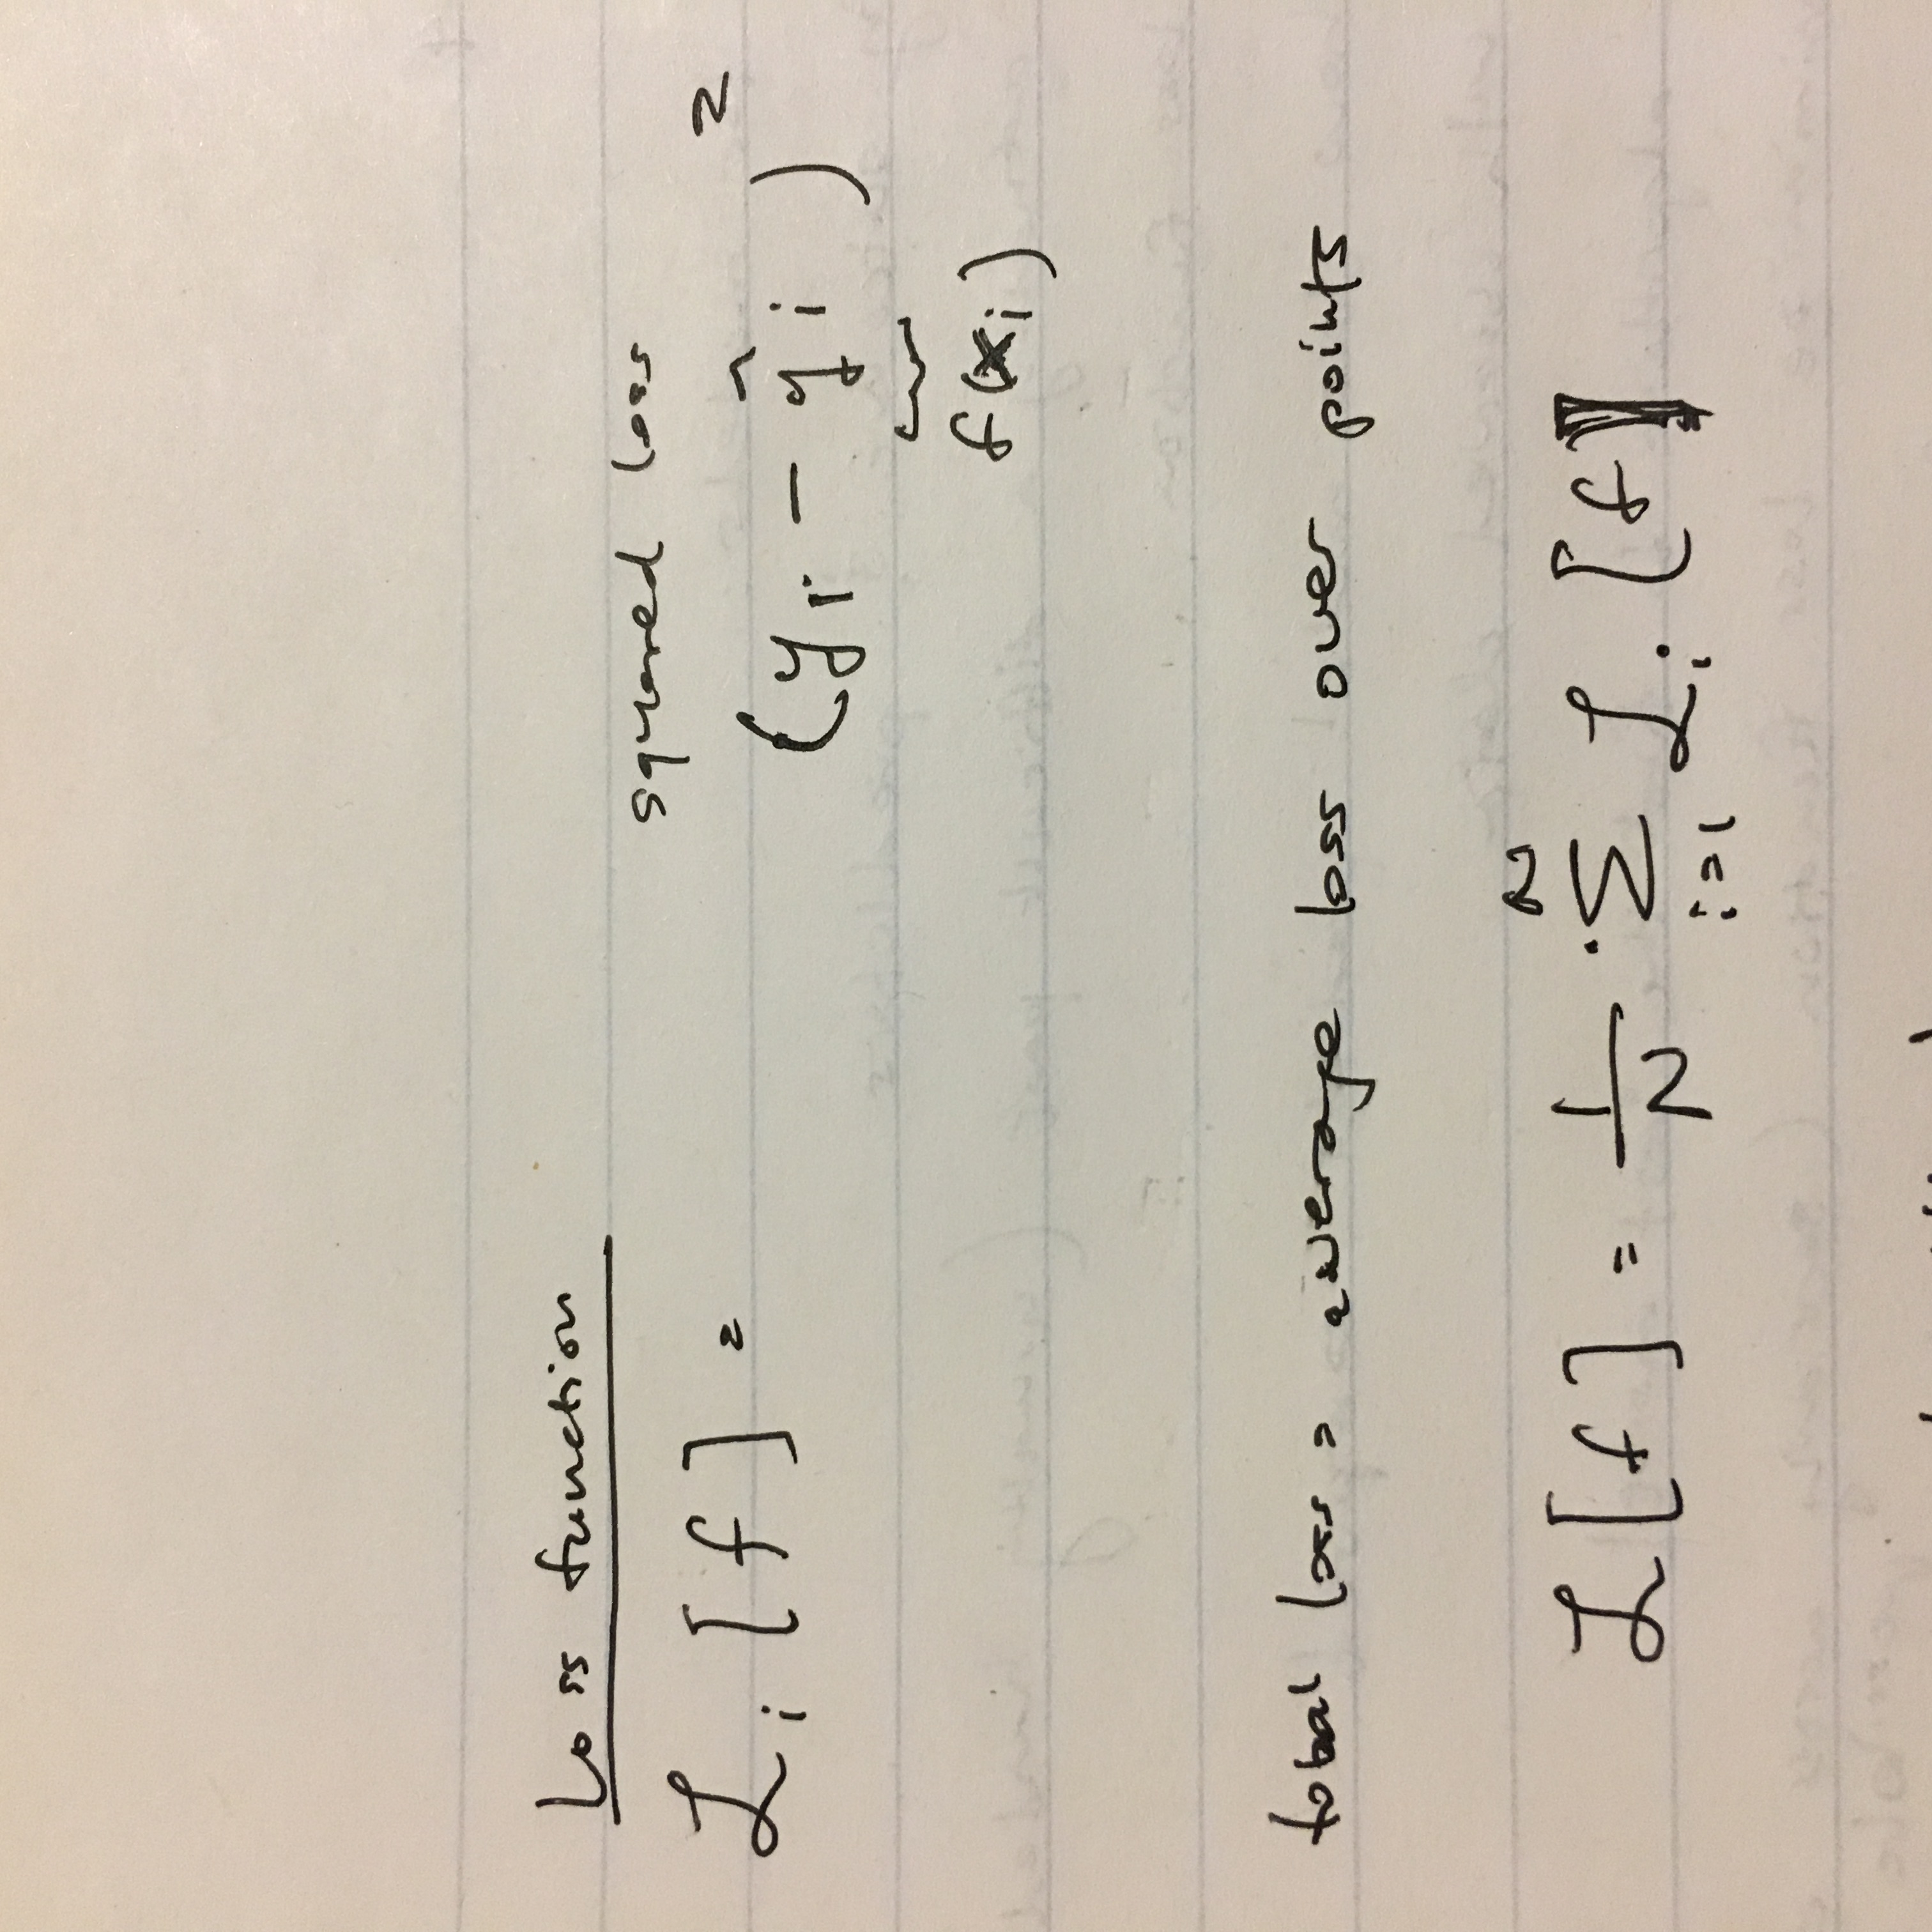 Loss function
squared loss
ℒᵢ [f] = (yᵢ − ŷᵢ)²
f(xᵢ)
total loss = average loss over points
N
ℒ[f] = 1/N · Σ ℒᵢ [f]
i=1